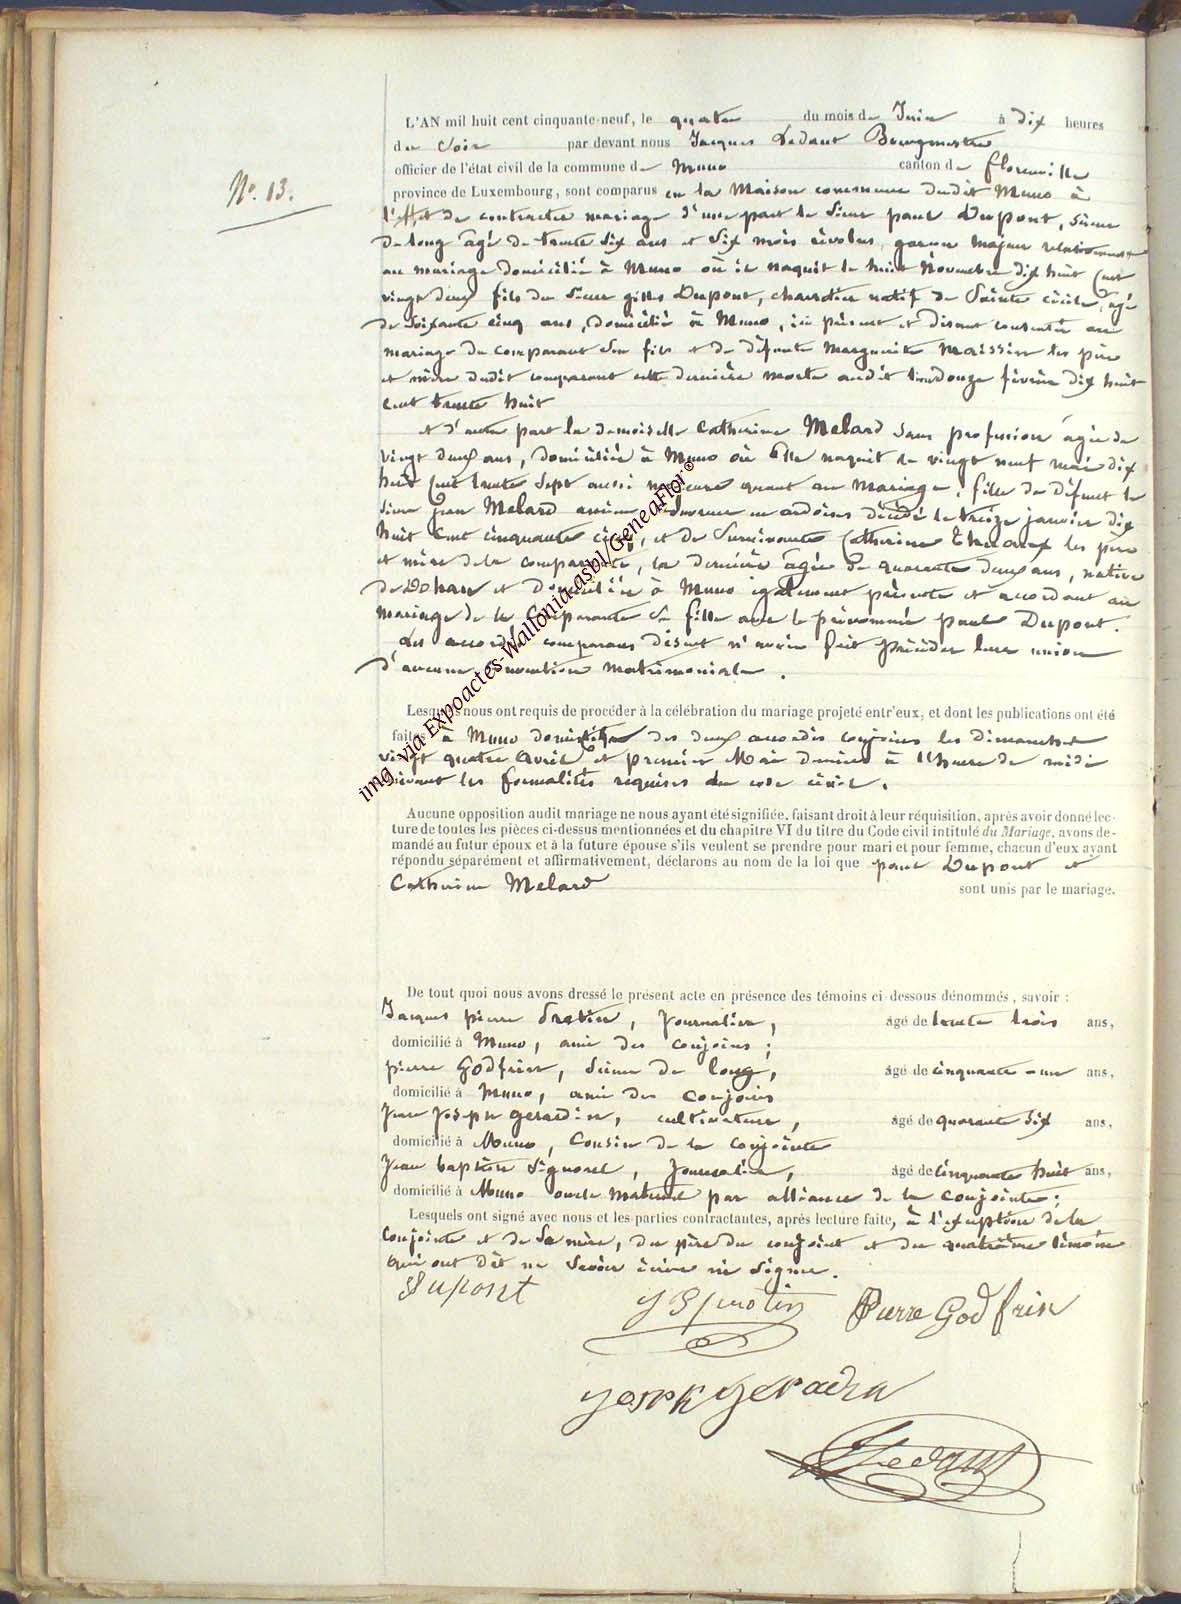 N°. 13.
L'AN mil huit cent cinquante-neuf, le quatre du mois de Juin à dix heures
du soir par devant nous Jacques Ledant Bourgmestre
officier de l'état civil de la commune de Muno canton de florenville
province de Luxembourg, sont comparus en la Maison commune dudit Muno à
l'effet de contracter mariage d'une part le Sieur paul Dupont, Scieur
de long âgé de trente six ans et six mois révolus, garçon majeur relativement
au mariage domicilié à Muno où il naquit le huit Novembre dix huit Cent
vingt deux fils du Sieur gilles Dupont, natif de Sainte Cécile, âgé
de soixante cinq ans, domicilié à Muno, ici présent et disant consentir au
mariage du comparant son fils et de défunte Marguerite Maissin les père
et mère dudit comparant cette dernière morte audit lieu douze février dix huit
cent trente huit
et d'autre part la demoiselle Catherine Melard sans profession âgée de
vingt deux ans, domiciliée à Muno où Elle naquit le vingt neuf mai dix
huit Cent trente sept aussi majeure quant au mariage, fille de défunt le
sieur Jean Melard ancien en ardoises décédé le treize janvier dix
huit Cent cinquante cinq, et de survivante Catherine les père
et mère de la comparante, la dernière âgée de quarante deux ans, native
de Dohan et domiciliée à Muno également présente et accordant au
mariage de la Comparante sa fille avec le prénommé paul Dupont.
Les accordés comparans disent n'avoir fait précéder leur union
d'aucune convention matrimoniale.
Lesquels nous ont requis de procéder à la célébration du mariage projeté entr'eux, et dont les publications ont été
faites à Muno domicile des deux accordés conjoins les Dimanches
vingt quatre avril et premier Mai dernier à l'heure de midi
suivant les formalités requises du code civil.
Aucune opposition audit mariage ne nous ayant été signifiée, faisant droit à leur réquisition, après avoir donné lec-
ture de toutes les pièces ci-dessus mentionnées et du chapitre VI du titre du Code civil intitulé du Mariage, avons de-
mandé au futur époux et à la future épouse s'ils veulent se prendre pour mari et pour femme, chacun d'eux ayant
répondu séparément et affirmativement, déclarons au nom de la loi que paul Dupont et
Catherine Melard sont unis par le mariage.
De tout quoi nous avons dressé le présent acte en présence des témoins ci-dessous dénommés, savoir :
Jacques pierre journalier, âgé de trente trois ans,
domicilié à Muno, ami des conjoins ;
pierre Godfrin, Scieur de long, âgé de cinquante-un ans,
domicilié à Muno, ami des conjoins
Jean Joseph gerardin, cultivateur, âgé de quarante six ans,
domicilié à Muno, Cousin de la conjointe
Jean baptiste Signorel, Journalier, âgé de cinquante huit ans,
domicilié à Muno oncle maternel par alliance de la conjointe ;
Lesquels ont signé avec nous et les parties contractantes, après lecture faite, à l'exception de la
conjointe et de sa mère, du père du conjoint et du quatrième témoin
qui ont dit ne savoir écrire ni signer.
Dupont
Pierre Godfrin
Joseph gerardin
Ledant
img via Expoactes-Wallonia.asbl/GeneaFlor®